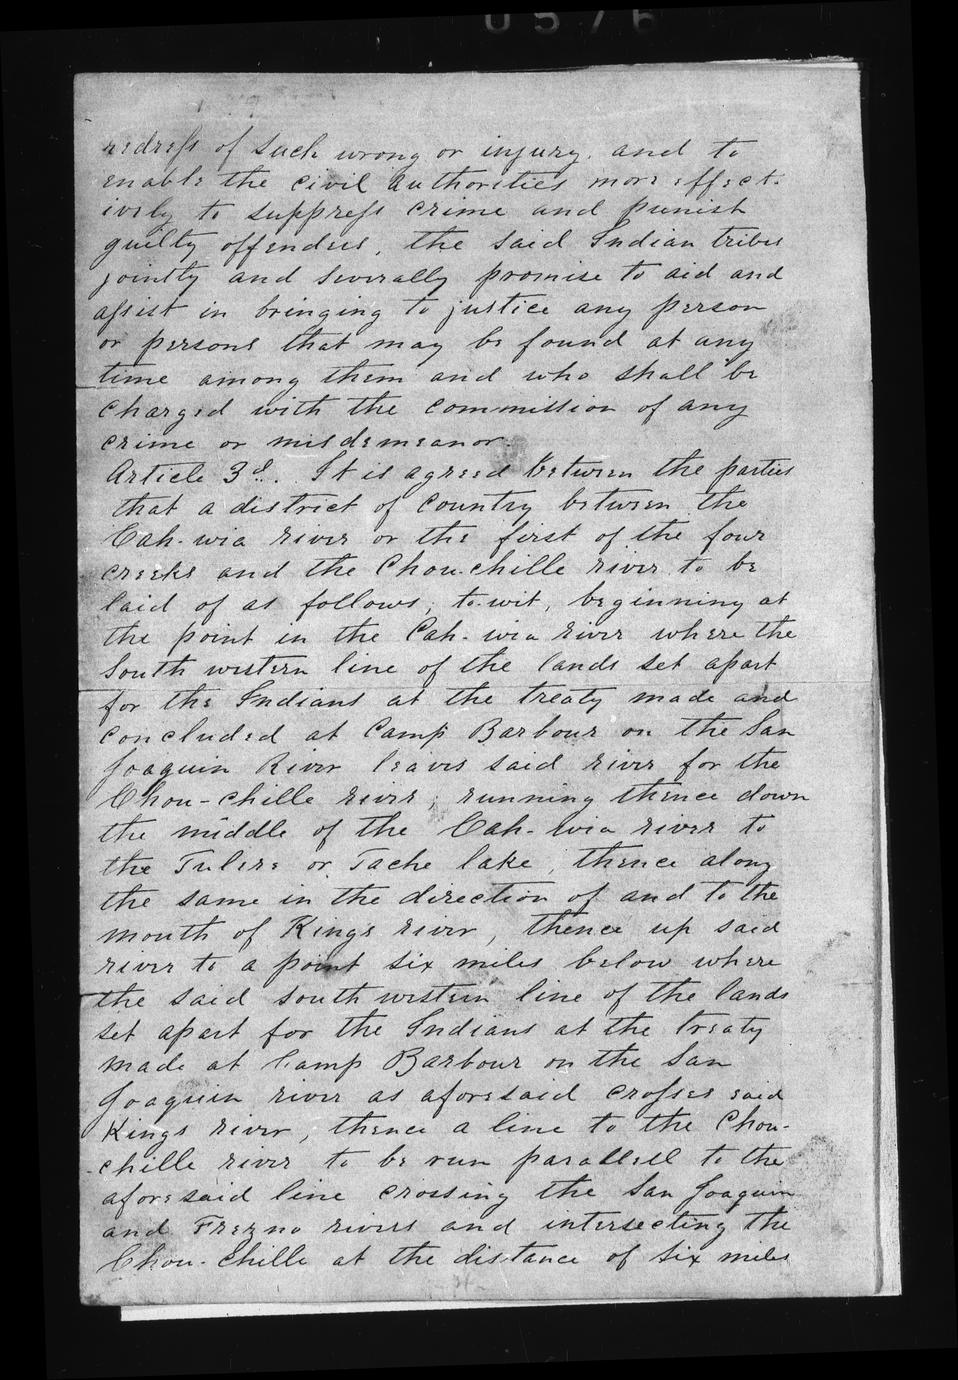 0576
redress of such wrong or injury. and to
enable the civil authorities more effect-
ively to suppress crime and punish
guilty offenders, the said Indian tribes
jointly and severally promise to aid and
assist in bringing to justice any person
or persons that may be found at any
time among them and who shall be
charged with the commission of any
crime or misdemeanor.
Article 3d. It is agreed between the parties
that a district of country between the
Cah-wia river or the first of the four
creeks and the Chou-chille river to be
laid of as follows; to-wit, beginning at
the point in the Cah-wia river where the
South western line of the lands set apart
for the Indians at the treaty made and
concluded at Camp Barbour on the San
Joaquin River leaves said river for the
Chou-chille river; running thence down
the middle of the Cah-wia river to
the Tulere or Tache lake, thence along
the same in the direction of and to the
mouth of Kings river, thence up said
river to a point six miles below where
the said south western line of the lands
set apart for the Indians at the treaty
made at Camp Barbour on the San
Joaquin river as aforesaid crosses said
Kings river, thence a line to the Chou-
-chille river to be run parallell to the
aforesaid line crossing the San Joaquin
and Frezno rivers and intersecting the
Chou-Chille at the distance of six miles